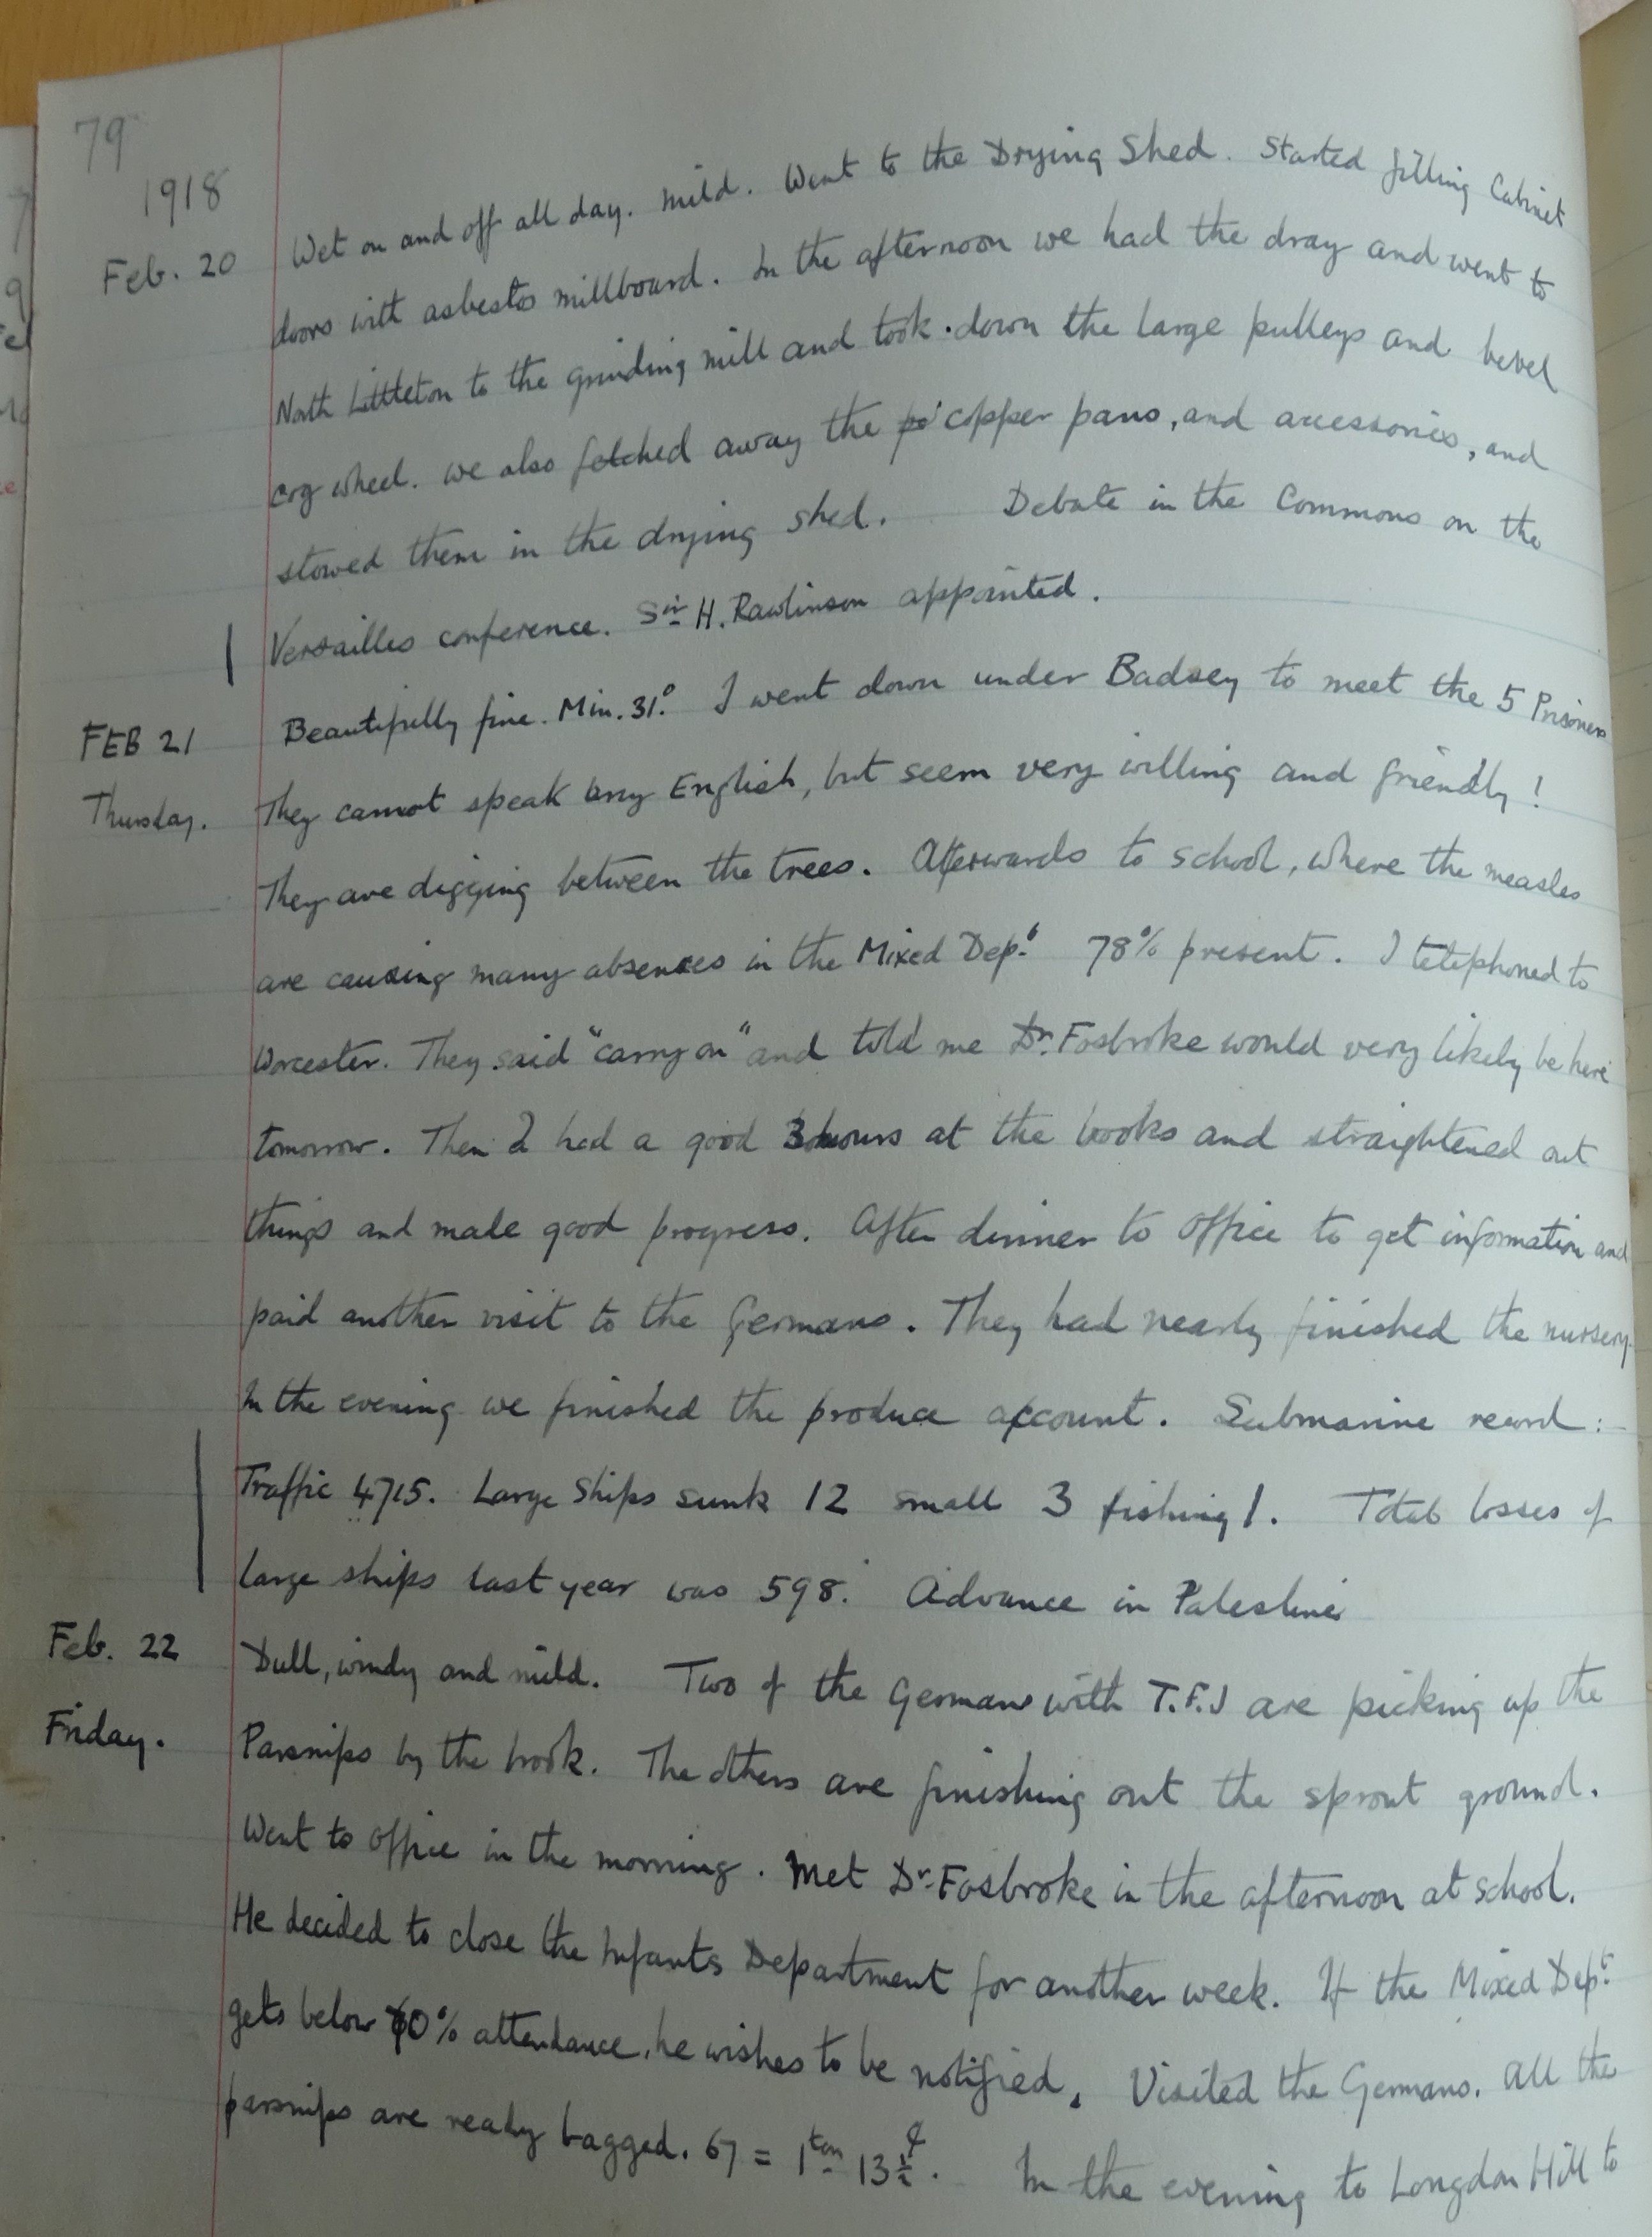 79
1918
Feb. 20 Wet on and off all day. Mild. Went to the Drying Shed. Started filling Cabinet
doors with asbestos millboard. In the afternoon we had the dray and went to
North Littleton to the grinding mill and took down the large pulleys and bevel
cog wheel. We also fetched away the copper pans, and accessories, and
stowed them in the drying shed. Debate in the Commons on the
Versailles conference. Sir H. Rawlinson appointed.
FEB 21 Beautifully fine. Min. 31.° I went down under Badsey to meet the 5 Prisoners
Thursday. They cannot speak any English, but seem very willing and friendly!
They are digging between the trees. Afterwards to school, where the measles
are causing many absences in the Mixed Dept. 78% present. I telephoned to
Worcester. They said "carry on" and told me Dr. Fosbroke would very likely be here
tomorrow. Then I had a good 3 hours at the books and straightened out
things and made good progress. After dinner to office to get information and
paid another visit to the Germans. They had nearly finished the nursery.
In the evening we finished the produce account. Submarine record:
Traffic 4715. Large Ships sunk 12 small 3 fishing 1. Total losses of
large ships last year was 598. Advance in Palestine
Feb. 22 Dull, windy and mild. Two of the Germans with T.F.J are picking up the
Friday. Parsnips by the brook. The others are finishing out the sprout ground.
Went to office in the morning. Met Dr. Fosbroke in the afternoon at school.
He decided to close the Infants Department for another week. If the Mixed Dept.
gets below 60% attendance, he wishes to be notified. Visited the Germans. All the
parsnips are ready bagged. 67 = 1 ton 13½ c. In the evening to Longdon Hill to